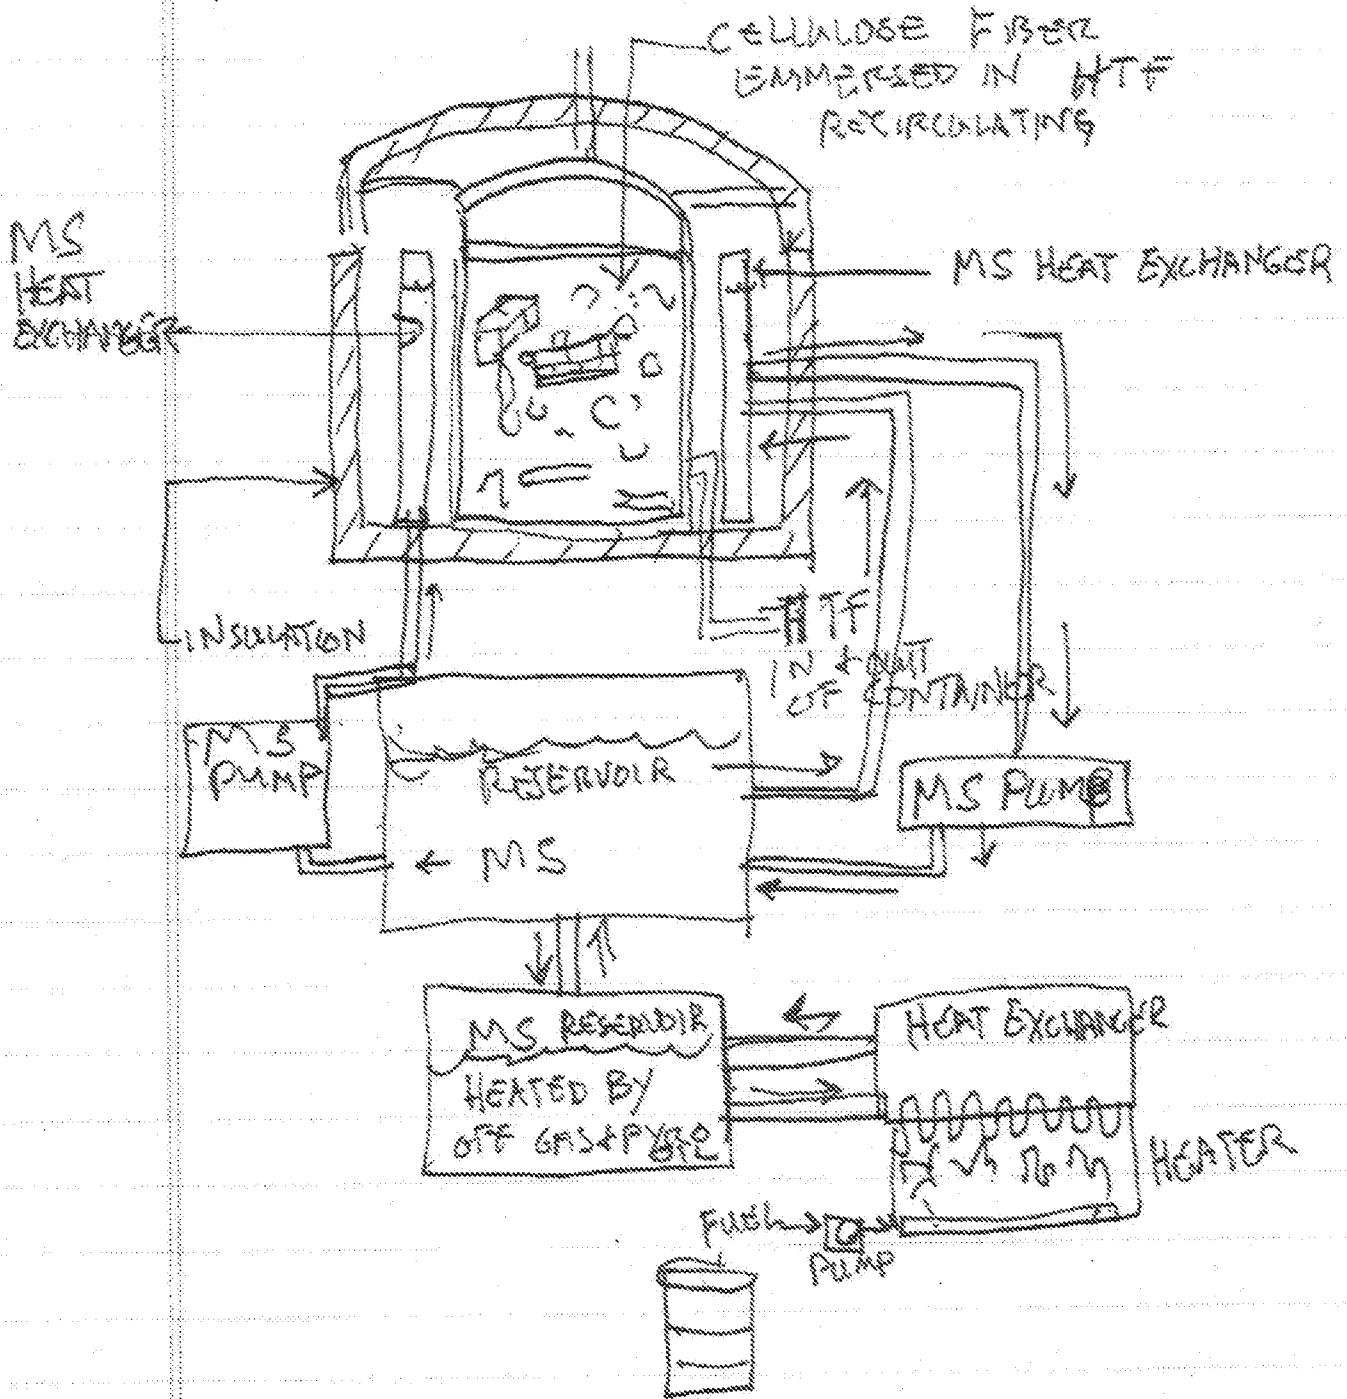 CELLULOSE FIBER
EMMERSED IN HTF
RECIRCULATING
MS
HEAT
EXCHANGER
MS HEAT EXCHANGER
INSULATION
HTF
IN & OUT
OF CONTAINER
MS
PUMP
RESERVOIR
MS
MS PUMP
MS RESERVOIR
HEATED BY
OFF GAS &
HEAT EXCHANGER
HEATER
FUEL
PUMP